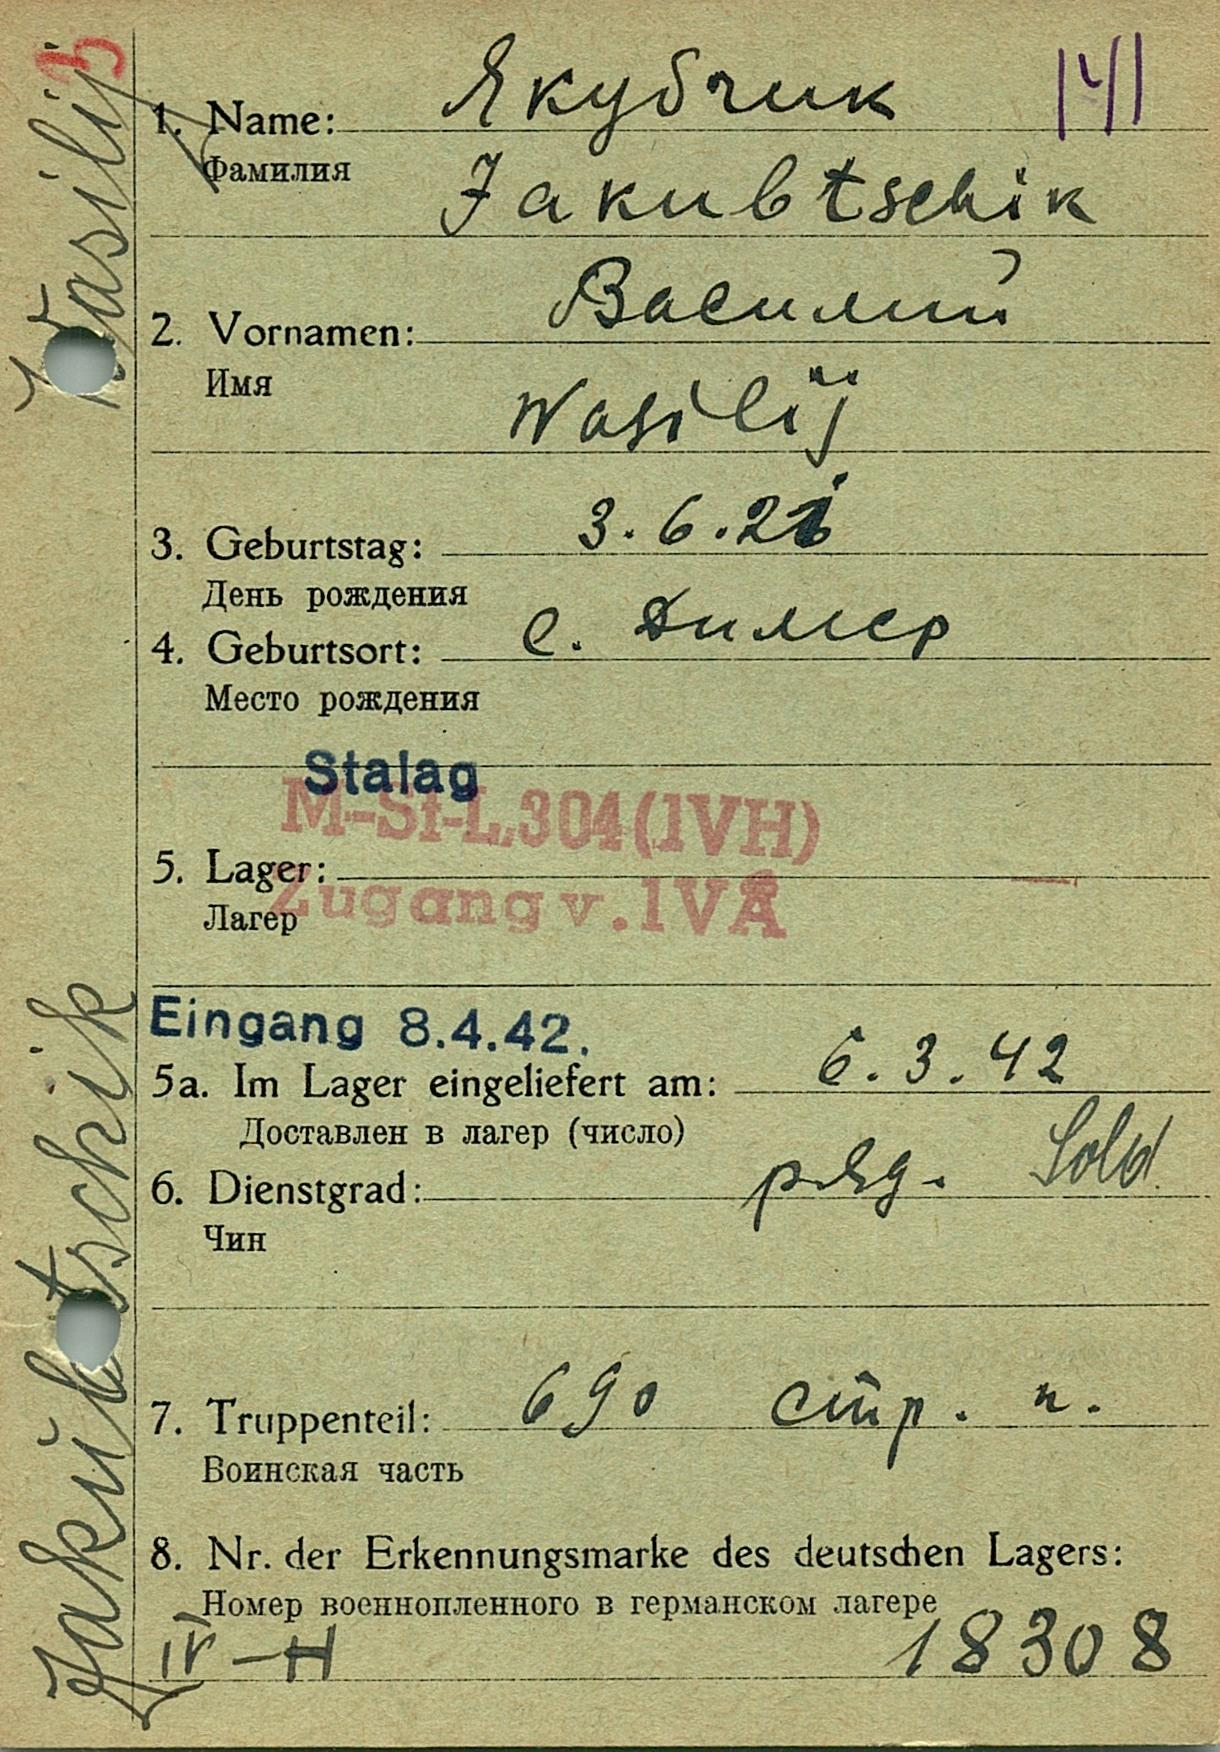 3
Jakubtschik Wasilij
141
1. Name: Якубчик
Фамилия
Jakubtschik
Василий
2. Vornamen:
Имя
Wasilij
3. Geburtstag: 3.6.21
День рождения
4. Geburtsort: с. Димер
Место рождения
Stalag
M-St-L.304(IVH)
5. Lager:
Лагер
Zugang v. IVA
Eingang 8.4.42.
5a. Im Lager eingeliefert am: 6.3.42
Доставлен в лагер (число)
6. Dienstgrad: ряд. Sold.
Чин
7. Truppenteil: 690 стр. п.
Воинская часть
8. Nr. der Erkennungsmarke des deutschen Lagers:
Номер военнопленного в германском лагере
IV-H 18308